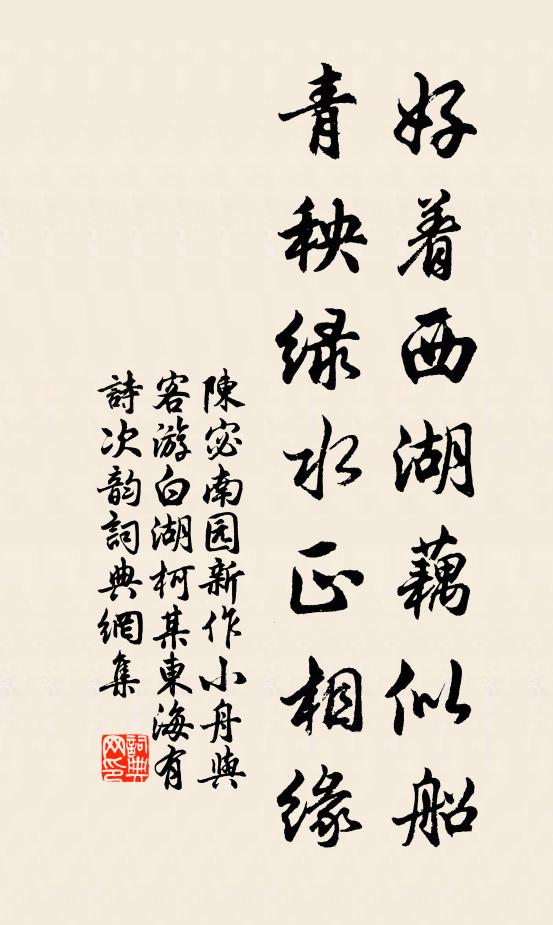 好着西湖藕似船
青秧绿水正相缘
陳宓南园新作小舟與
客游白湖柯某東海有
詩次韵詞典網集
詞典网印